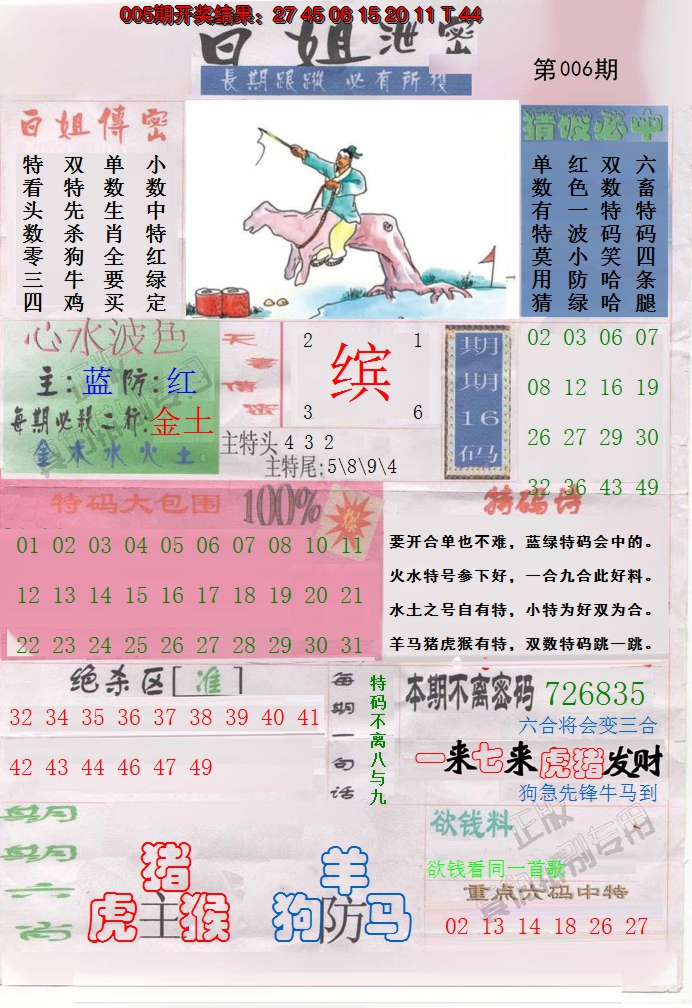 005期开奖结果：27 45 06 15 20 11 T 44
白姐泄密
長期跟蹤 必有所獲
第006期
白姐傳密
小数中特红绿定
单数生肖全要买
双特先杀狗牛鸡
特看头数零三四
猜波必中
六畜特码四条腿
双数特码笑哈哈
红色一波小防绿
单数有特莫用猜
心水波色
主:蓝 防:红
每期必殺二行:金土
金木水火土
2 1
缤
3 6
主特头 4 3 2
主特尾:5\8\9\4
期期16码
02 03 06 07
08 12 16 19
26 27 29 30
32 36 43 49
特码大包围 100%
01 02 03 04 05 06 07 08 10 11
12 13 14 15 16 17 18 19 20 21
22 23 24 25 26 27 28 29 30 31
特码诗
要开合单也不难，蓝绿特码会中的。
火水特号参下好，一合九合此好料。
水土之号自有特，小特为好双为合。
羊马猪虎猴有特，双数特码跳一跳。
绝杀区[准]
32 34 35 36 37 38 39 40 41
42 43 44 46 47 49
每期一句话
特码不离八与九
本期不离密码 726835
六合将会变三合
一来七来虎猪发财
狗急先锋牛马到
每期
每期
六
肖
猪
虎主猴
羊
狗防马
欲钱料
欲钱看同一首歌
重点六码中特
02 13 14 18 26 27